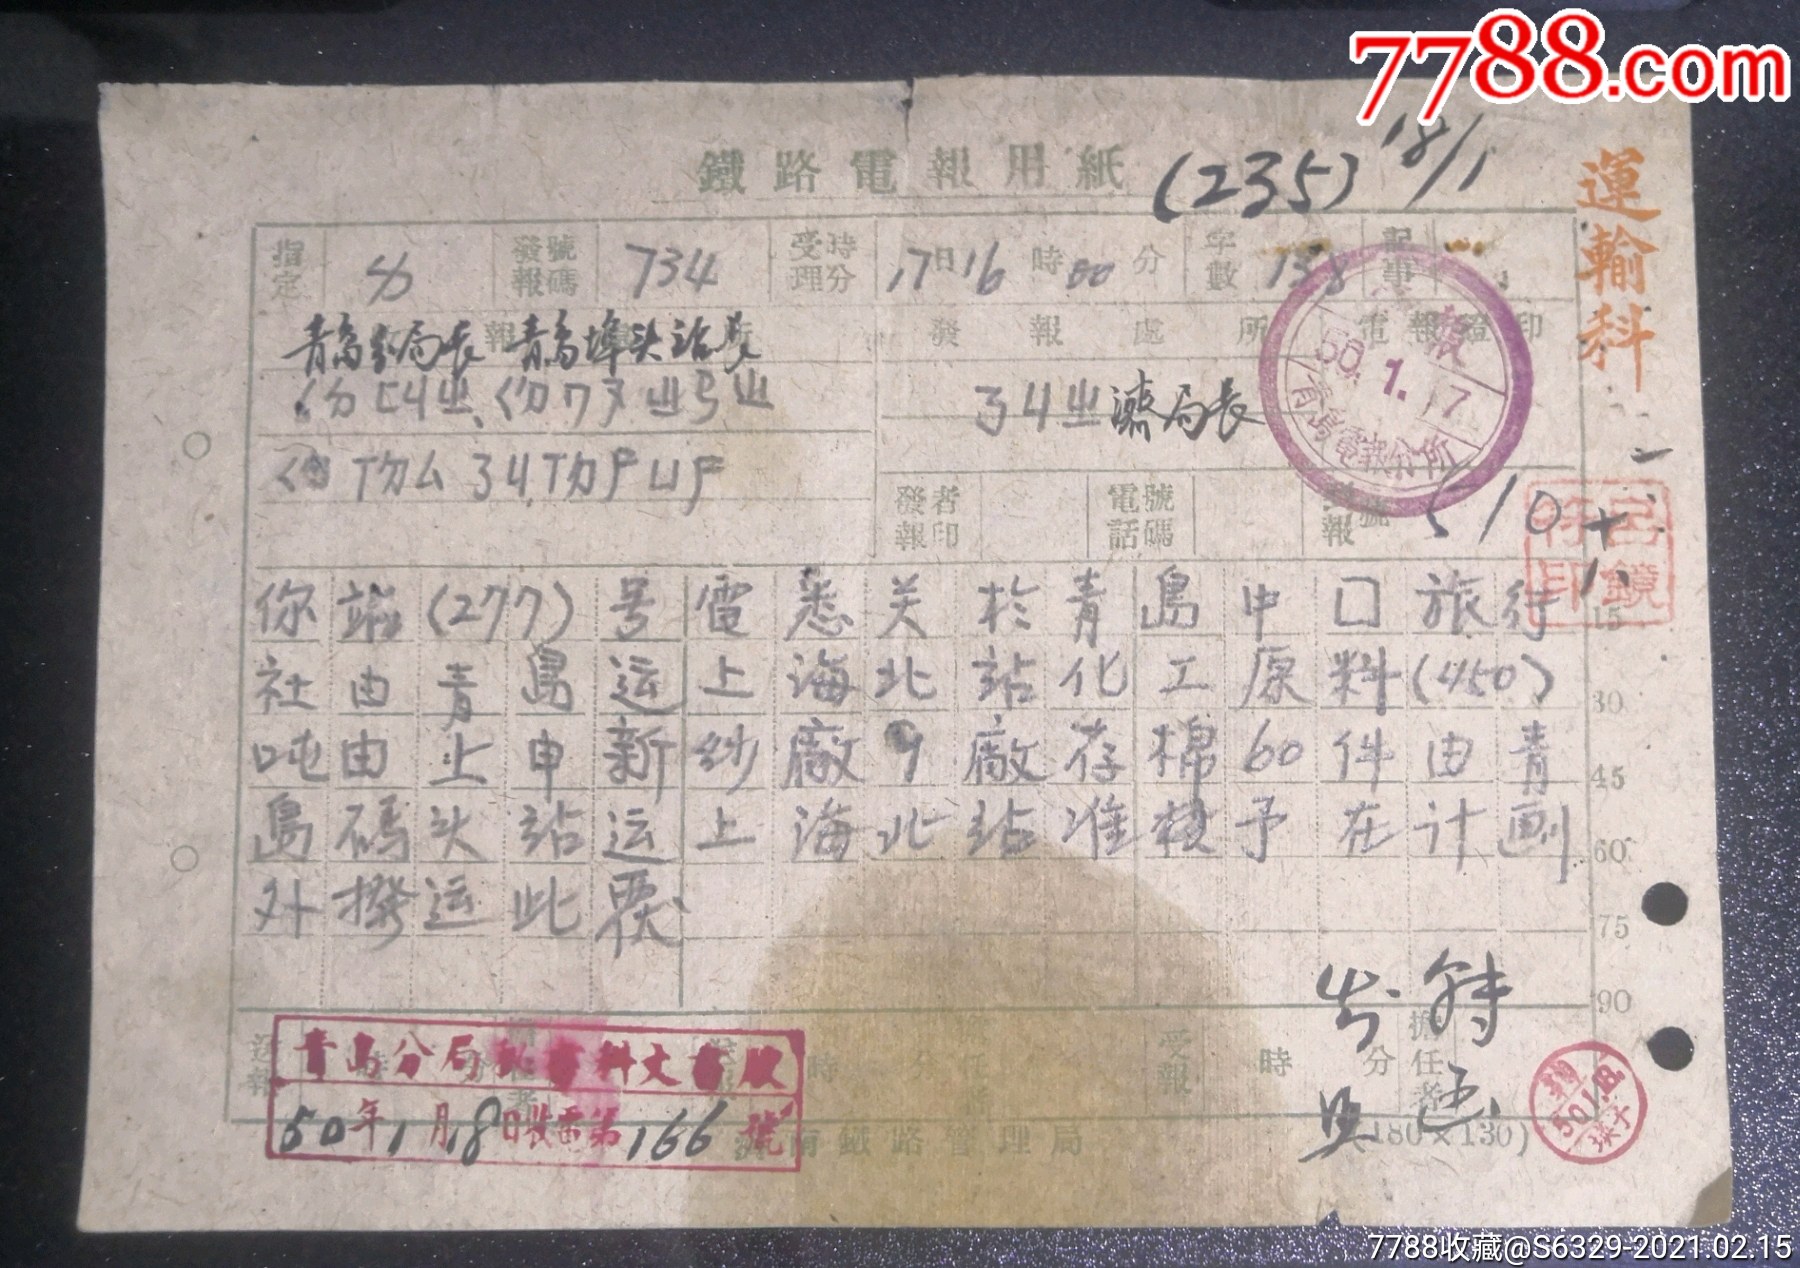 7788.com
鐵路電報用紙
(235) 18/1
運輸科
指定 発報號碼 734 受理時分 17日16時00分 字數 138 記事
報
青島分局長 青島埠头站長
發報處所 電報證印
局長
50.1.17
青島電報分所
發報者印 電話號碼 510
呂鏡符印
你端(277)号電悉关於青島中口旅行
15
社由青島运上海北站化工原料(450)
30
吨由上申新纱廠9廠存棉60件由青
45
島码头站运上海北站准核予在计劃
60
外撥运此覆
75
90
送報 時 分 擔任者 時 分 受報 時 分 擔任者
青島分局秘書科文書股
50年1月18日收電第166號
濟南鐵路管理局
(180×130)
50.1.18
7788收藏@S6329-2021.02.15